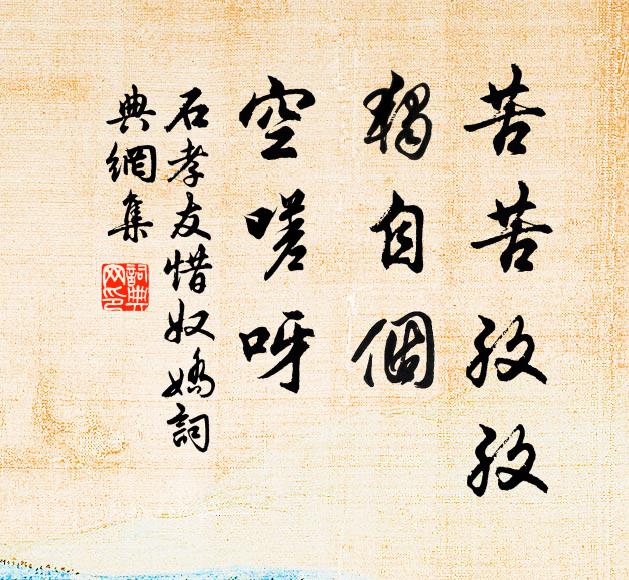 苦苦孜孜
獨自個
空嗟呀
石孝友惜奴嬌詞
典網集
詞典
网印